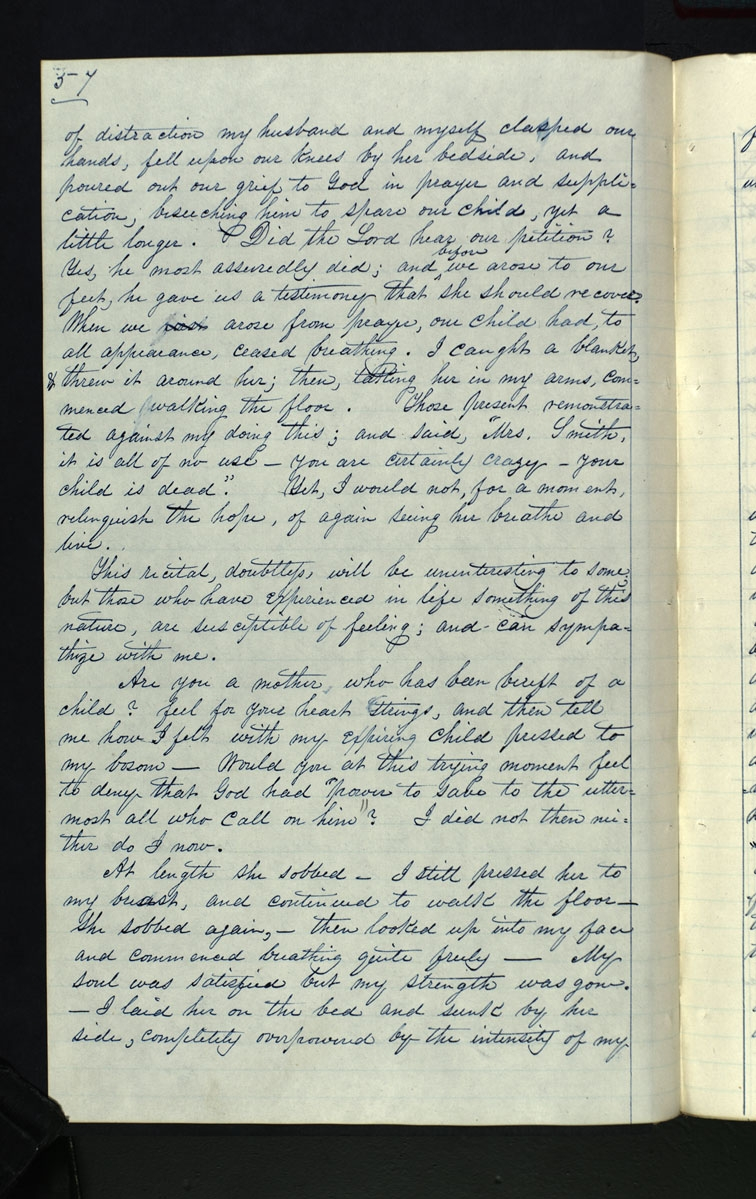 57
of distraction my husband and myself clasped our
hands, fell upon our knees by her bedside, and
poured out our grief to God in prayer and suppli=
cation; beseeching him to spare our child, yet a
little longer. Did the Lord hear our petition?
before
Yes, he most assuredly did; and ^ we arose to our
feet, he gave us a testimony that she should recover.
When we arose from prayer, our child had, to
all appearance, ceased breathing. I caught a blanket,
& threw it around her; then, taking her in my arms, com=
menced walking the floor. Those present remonstra=
ted against my doing this; and said, "Mrs. Smith,
it is all of no use — you are certainly crazy — your
child is dead". Yet, I would not, for a moment,
relinquish the hope, of again seeing her breathe and
live.
This recital, doubtless, will be uninteresting to some;
but those who have experienced in life something of this
nature, are susceptible of feeling; and can sympa=
thize with me.
Are you a mother, who has been bereft of a
child? feel for your heart strings, and then tell
me how I felt with my expiring child pressed to
my bosom — Would you at this trying moment feel
to deny that God had "power to save to the utter=
most all who call on him"? I did not then nei=
ther do I now.
At length she sobbed — I still pressed her to
my breast, and continued to walk the floor —
She sobbed again, — then looked up into my face
and commenced breathing quite freely — My
soul was satisfied but my strength was gone.
— I laid her on the bed and sunk by her
side, completely overpowered by the intensity of my